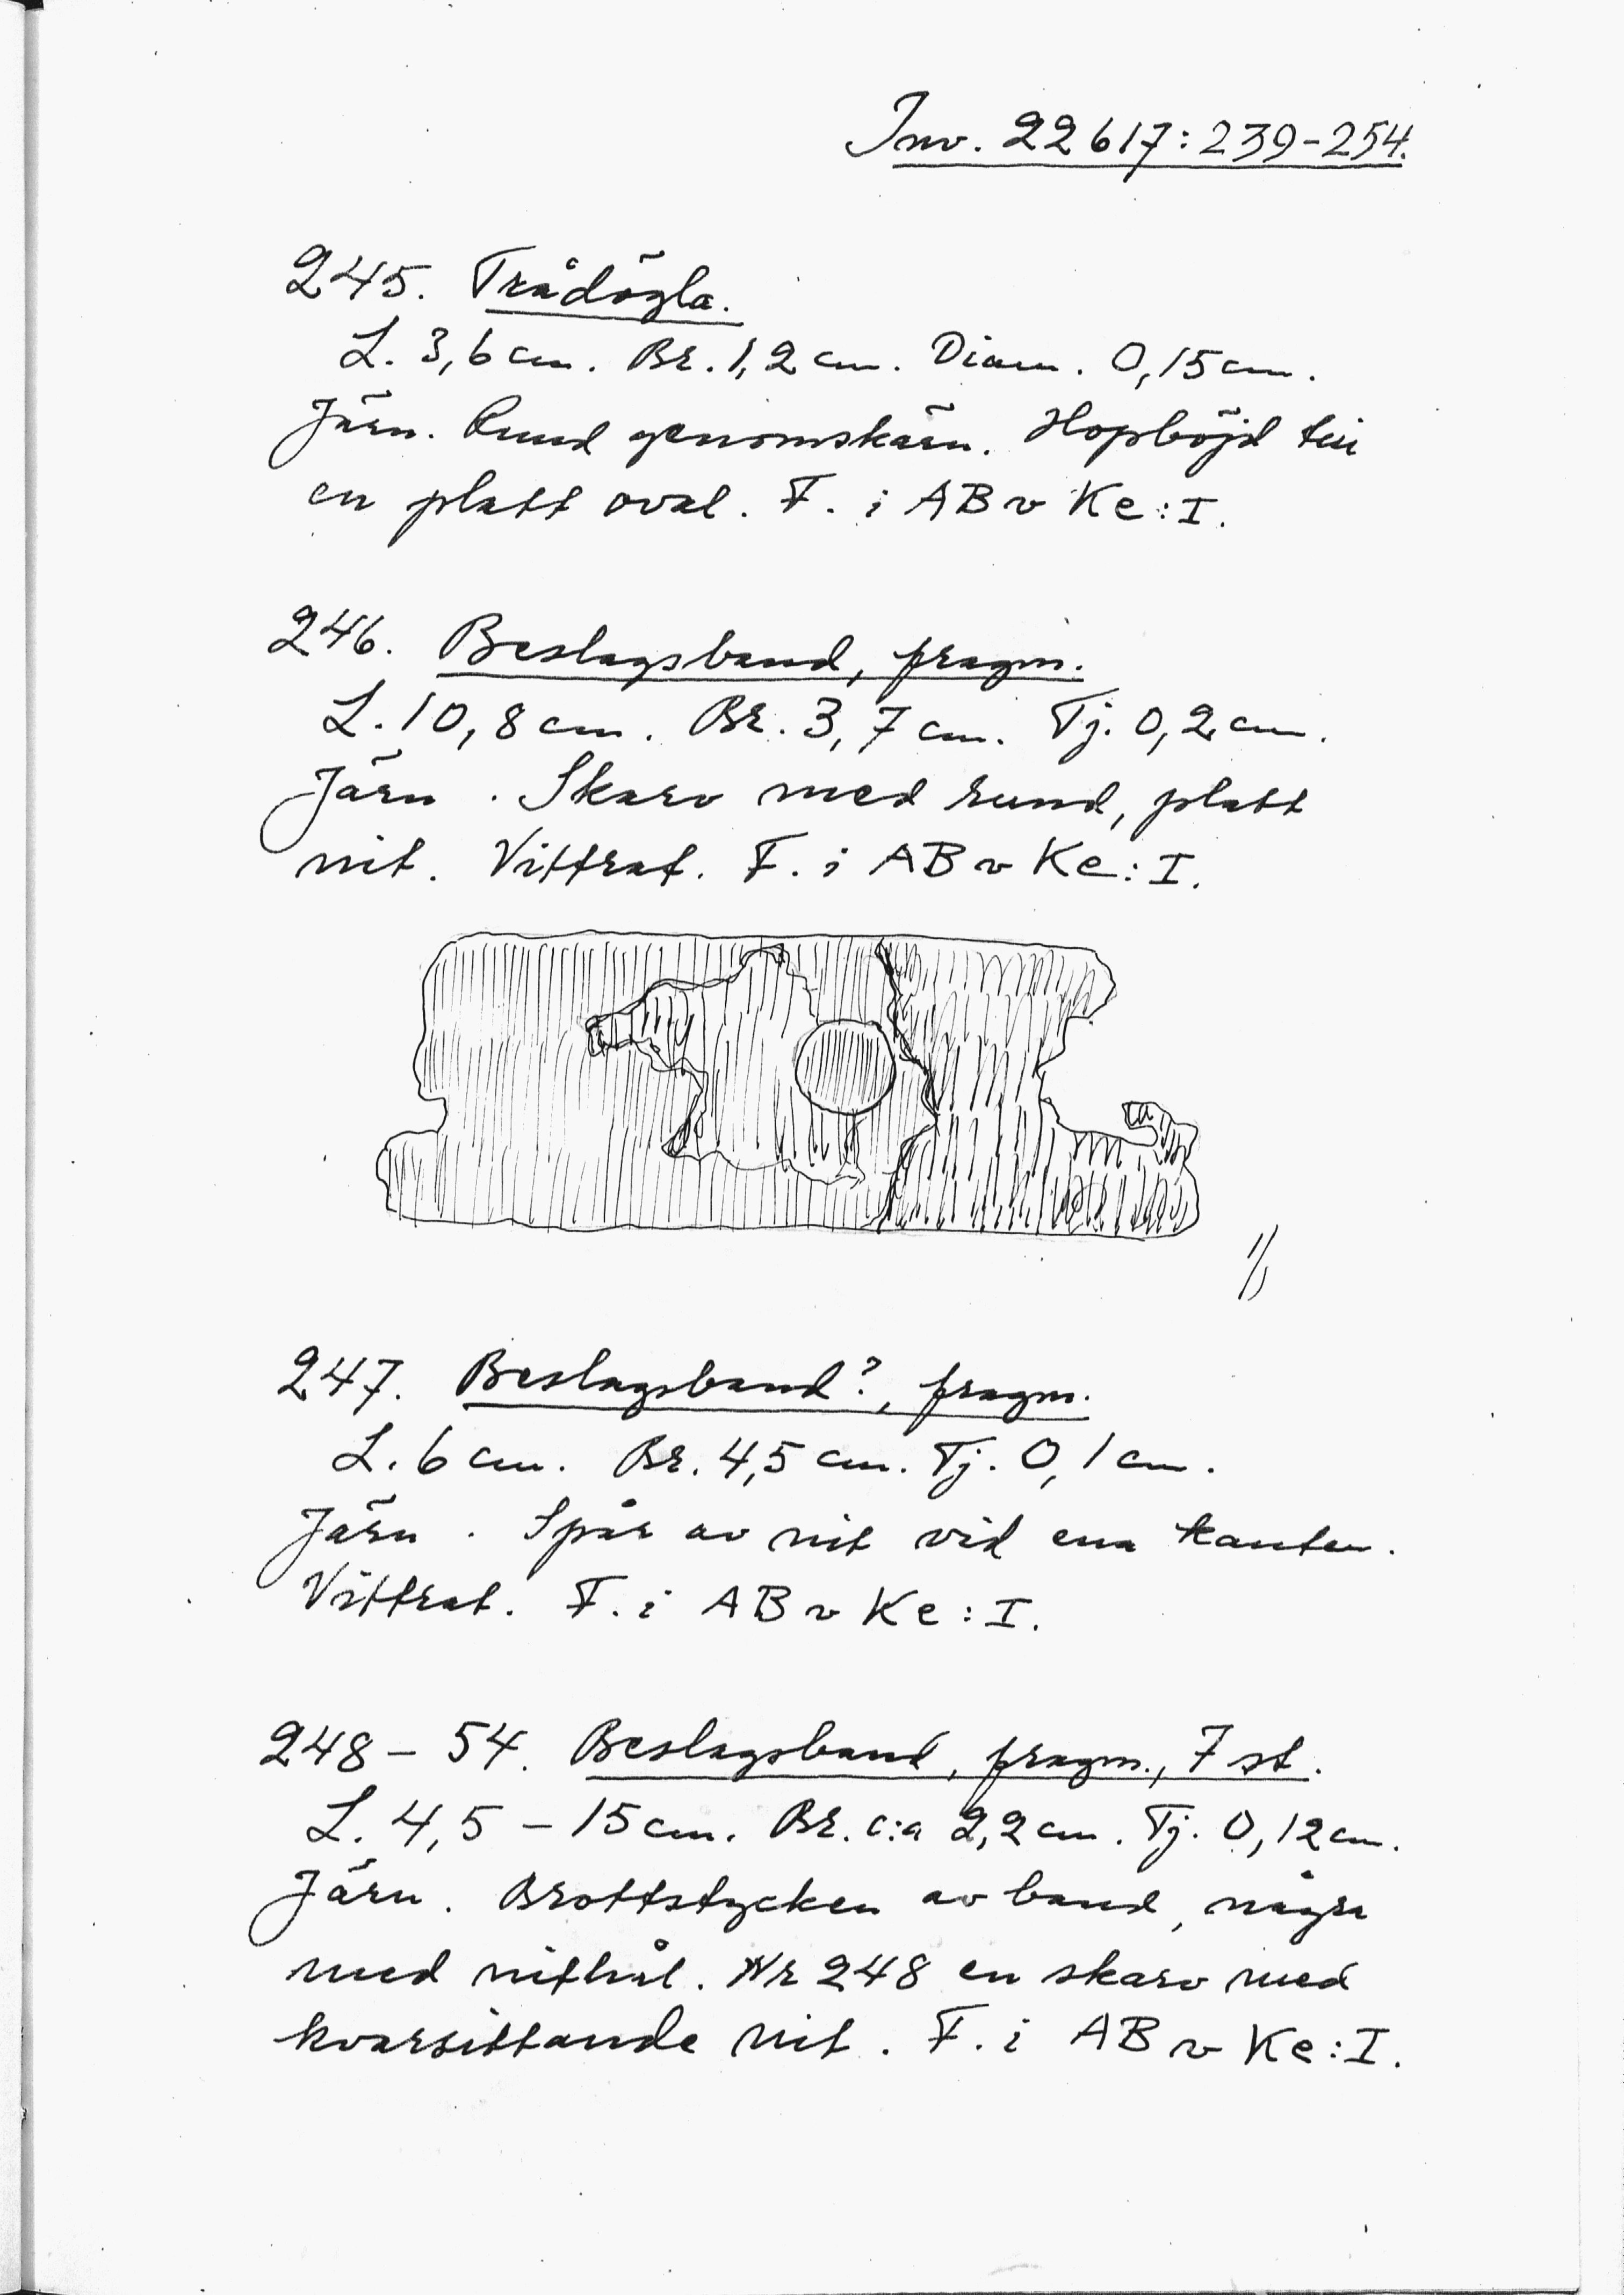 Inv. 22617:239-254.
245. Trådögla.
L. 3,6 cm. Br. 1,2 cm. Diam. 0,15 cm.
Järn. Rund genomskärn. Hopböjd till
en platt oval. F. i ABv Ke:I.
246. Beslagsband, fragm.
L. 10,8 cm. Br. 3,7 cm. Tj. 0,2 cm.
Järn. Skarv med rund, platt
nit. Vittrat. F. i ABv Ke:I.
1/1
247. Beslagsband?, fragm.
L. 6 cm. Br. 4,5 cm. Tj. 0,1 cm.
Järn. Spår av nit vid ena kanten.
Vittrat. F. i ABv Ke:I.
248-54. Beslagsband, fragm., 7 st.
L. 4,5-15 cm. Br. c:a 2,2 cm. Tj. 0,12 cm.
Järn. Brottstycken av band, några
med nithål. Nr 248 en skarv med
kvarsittande nit. F. i ABv Ke:I.